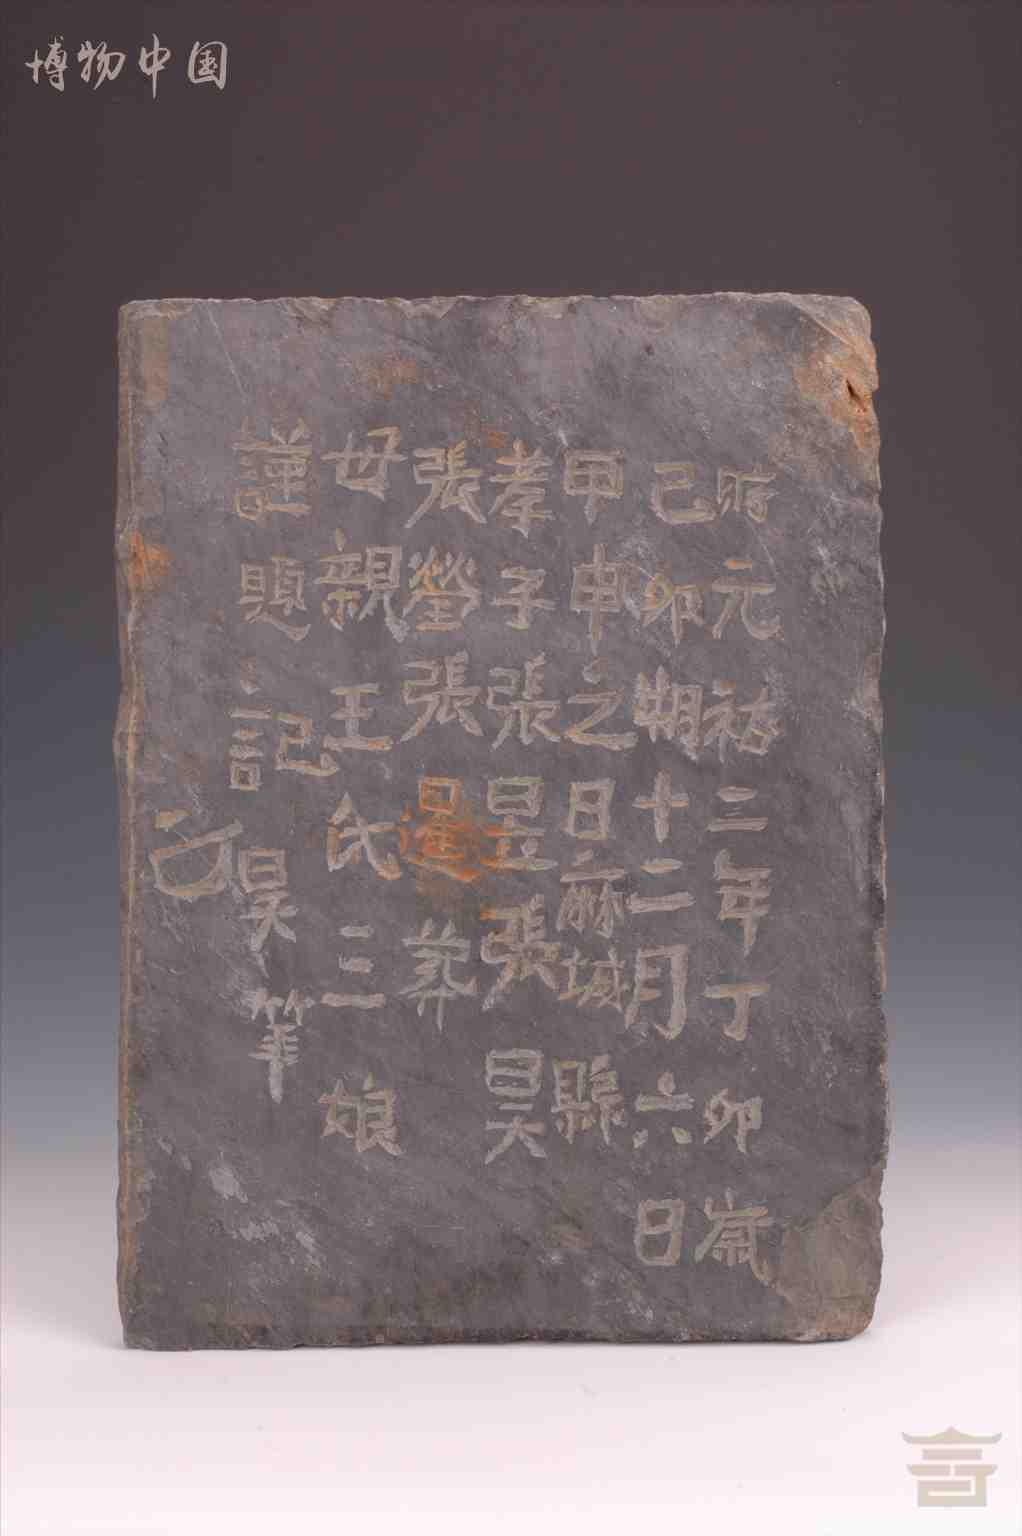 博物中国
时元祐二年丁卯岁
己卯朔十二月六日
甲申之日麻城縣
孝子張昱張昊
張塋張暹葬
母親王氏三娘
謹題記昊筆